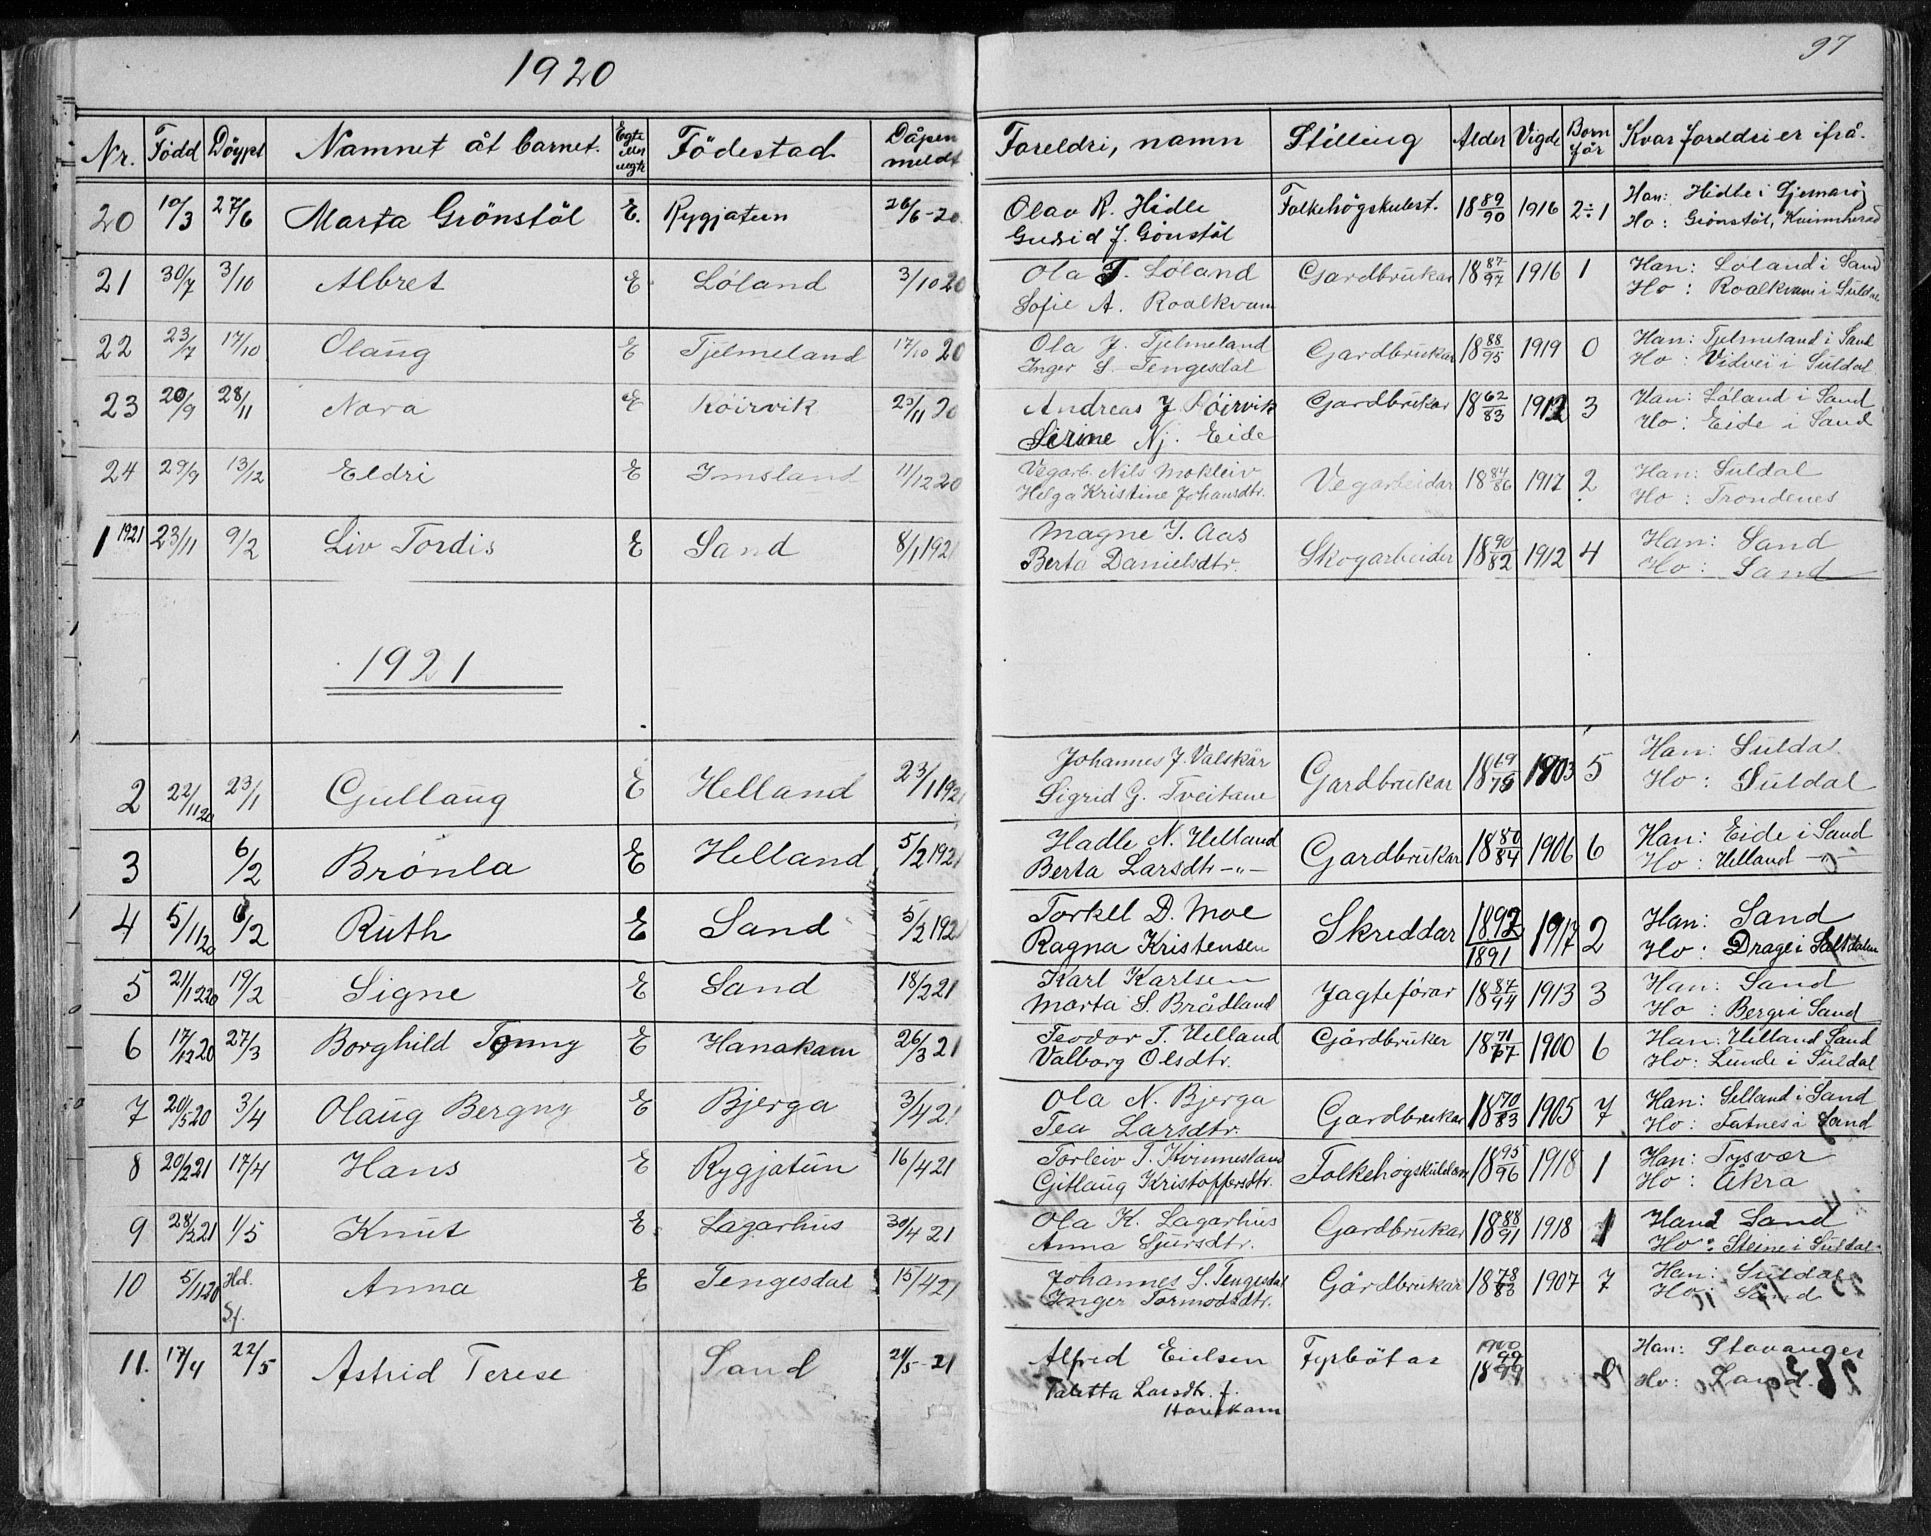 1920
97
Nr. Född Döypt Namnet åt barnet. Egte elln uegte Födestad Dåpen meldt Foreldri, namn Stilling Alder Vigde Born før Kvar foreldri er ifrå.
20 10/3 27/6 Marta Grönstöl E. Rygjatun 26/6-20. Olav R. Hidle Folkehøgskulest. 18 89/90 1916 2÷1 Han: Hidle i
Gurid J. Gönstöl Ho: Grönstöl, Kvinnherad
21 30/7 3/10 Albret E Løland 3/10 20 Ola T. Løland Gardbrukar 18 87/97 1916 1 Han: Løland i Sand
Sofie A. Roalkvam Ho: Roalkvam i Suldal
22 23/7 17/10 Olaug E Tjelmeland 17/10 20 Ola J. Tjelmeland Gardbrukar 18 88/95 1919 0 Han: Tjelmeland i Sand
Inger S. Tengesdal Ho: i Suldal
23 20/9 28/11 Nora E Röirvik 25/11 20 Andreas J Röirvik Gardbrukar 18 62/83 1912 3 Han: Løland i Sand
Serine Nj. Eide Ho: Eide i Sand
24 29/9 13/12 Eldri E Imsland 11/12 20 Vegarb. Nils Mokleiv Vegarbeidar 18 84/86 1917 2 Han: Suldal
Helga Kristine Johansdtr. Ho: Trondenes
1 1921 23/11 9/2 Liv Tordis E Sand 8/1 1921 Magne I. Aas Skogarbeider 18 90/82 1912 4 Han: Sand
Berta Danielsdtr. Ho: Sand
1921
2 22/11 20 23/1 Gullaug E Helland 23/1 1921 Johannes J. Valskår Gardbrukar 18 69/79 1903 5 Han: Suldal
Sigrid G. Tveitane Ho: Suldal
3 6/2 Brönla E Helland 5/2 1921 Hadle N. Helland Gardbrukar 18 80/84 1906 6 Han: Eide i Sand
Berta Larsdtr -„- Ho: Helland -„-
4 5/11 20 6/2 Ruth E Sand 5/2 1921 Torkel D. Moe Skreddar 1892/1891 1917 2 Han: Sand
Ragna Kristensen Ho: Drage i Saltdalen
5 21/12 20 19/2 Signe E Sand 18/2 21 Karl Karlsen Jagteförar 18 87/94 1913 3 Han: Sand
Marta S. Brådland Ho: Berge i Sand
6 17/12 20 27/3 Borghild Tonny E Hanakam 26/3 21 Teodor T. Helland Gårdbruker 18 71/77 1900 6 Han: Helland Sand
Valborg Olsdtr. Ho: Lunde i Suldal
7 20/5 20 3/4 Olaug Bergny E Bjerga 3/4 21 Ola N. Bjerga Gardbrukar 18 70/83 1905 7 Han: Selland i Sand
Tea Larsdtr. Ho: Fatnes i Sand
8 20/2 21 17/4 Hans E Rygjatun 16/4 21 Torleiv T. Kvinnesland Folkehøgskulelær 18 95/96 1918 1 Han: Tysvær
Gitlaug Kristoffersdtr. Ho: Åkra
9 28/2 21 1/5 Knut E Lagarhus 30/4 21 Ola K. Lagarhus Gardbrukar 18 88/91 1918 1 Han: Sand
Anna Sjursdtr. Ho: Steine i Suldal
10 5/11 20 Hd. Anna E Tengesdal 15/4 21 Johannes S. Tengesdal Gårdbrukar 18 78/83 1907 7 Han: Suldal
Sf. Inger Tormodsdtr. Ho: Sand
11. 17/4 22/5 Astrid Terese Sand 21/5-21 Alfred Eielsen Fyrbötar 1900 Han: Stavanger
Taletta Larsdtr. f. 1899 Ho: Sand
Hanekam